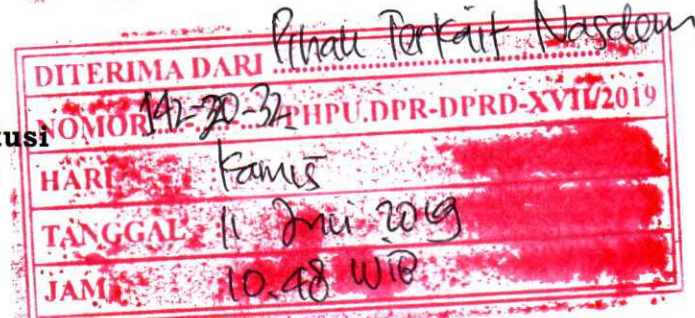 DITERIMA DARI Pihak Terkait Nasdem
NOMOR 142-20-32/PHPU.DPR-DPRD-XVII/2019
tusi
HARI Kamis
TANGGAL 11 Juli 2019
JAM 10.48 WIB